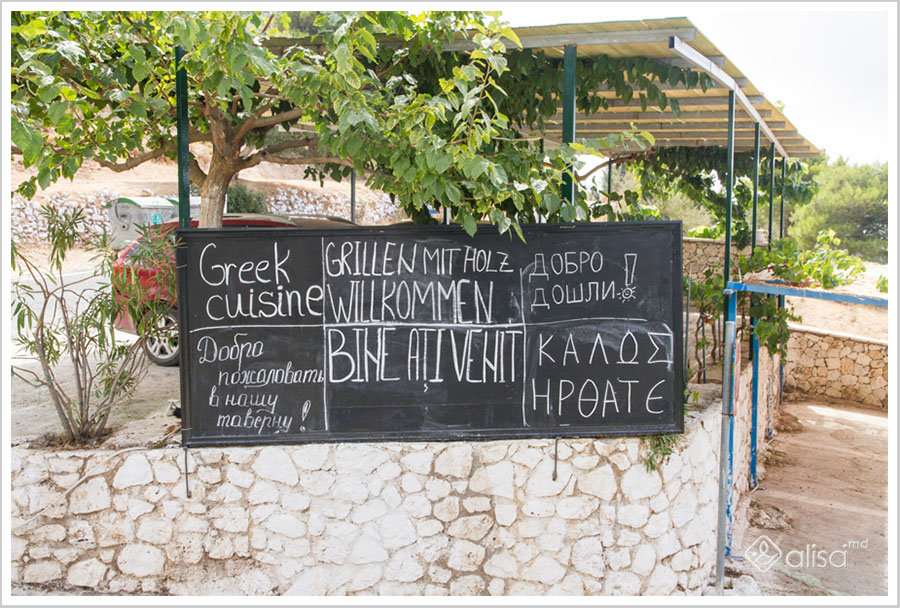 Greek
cuisine
GRILLEN MIT HOLZ
WILLKOMMEN
ДОБРО
ДОШЛИ!
Добро
пожаловать
в нашу
таверну!
BINE AȚI VENIT
ΚΑΛΩΣ
ΗΡΘΑΤΕ
alisa md